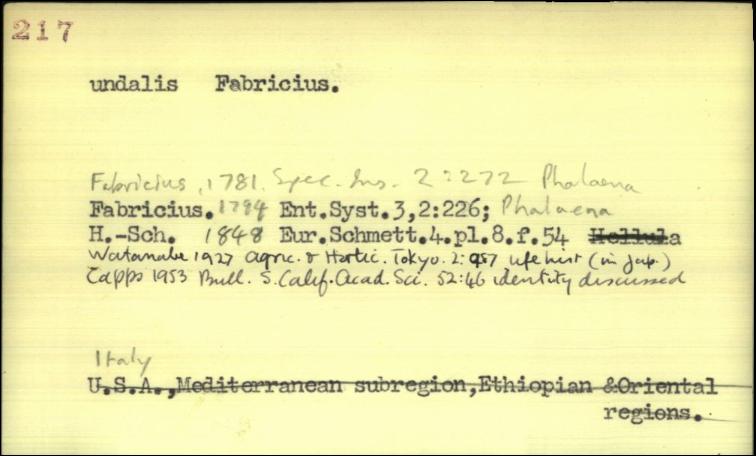 217
undalis Fabricius.
Fabricius, 1781. Spec. Ins. 2:272 Phalaena
Fabricius. 1794 Ent.Syst.3,2:226; Phalaena
H.-Sch. 1848 Eur.Schmett.4.pl.8.f.54 Hellula
Watanabe 1927 Agric. & Hortic. Tokyo. 2: 957 life hist (in Jap.)
Capps 1953 Bull. S. Calif. Acad. Sci. 52:46 identity discussed
Italy
U.S.A.,Mediterranean subregion,Ethiopian &Oriental
regions.